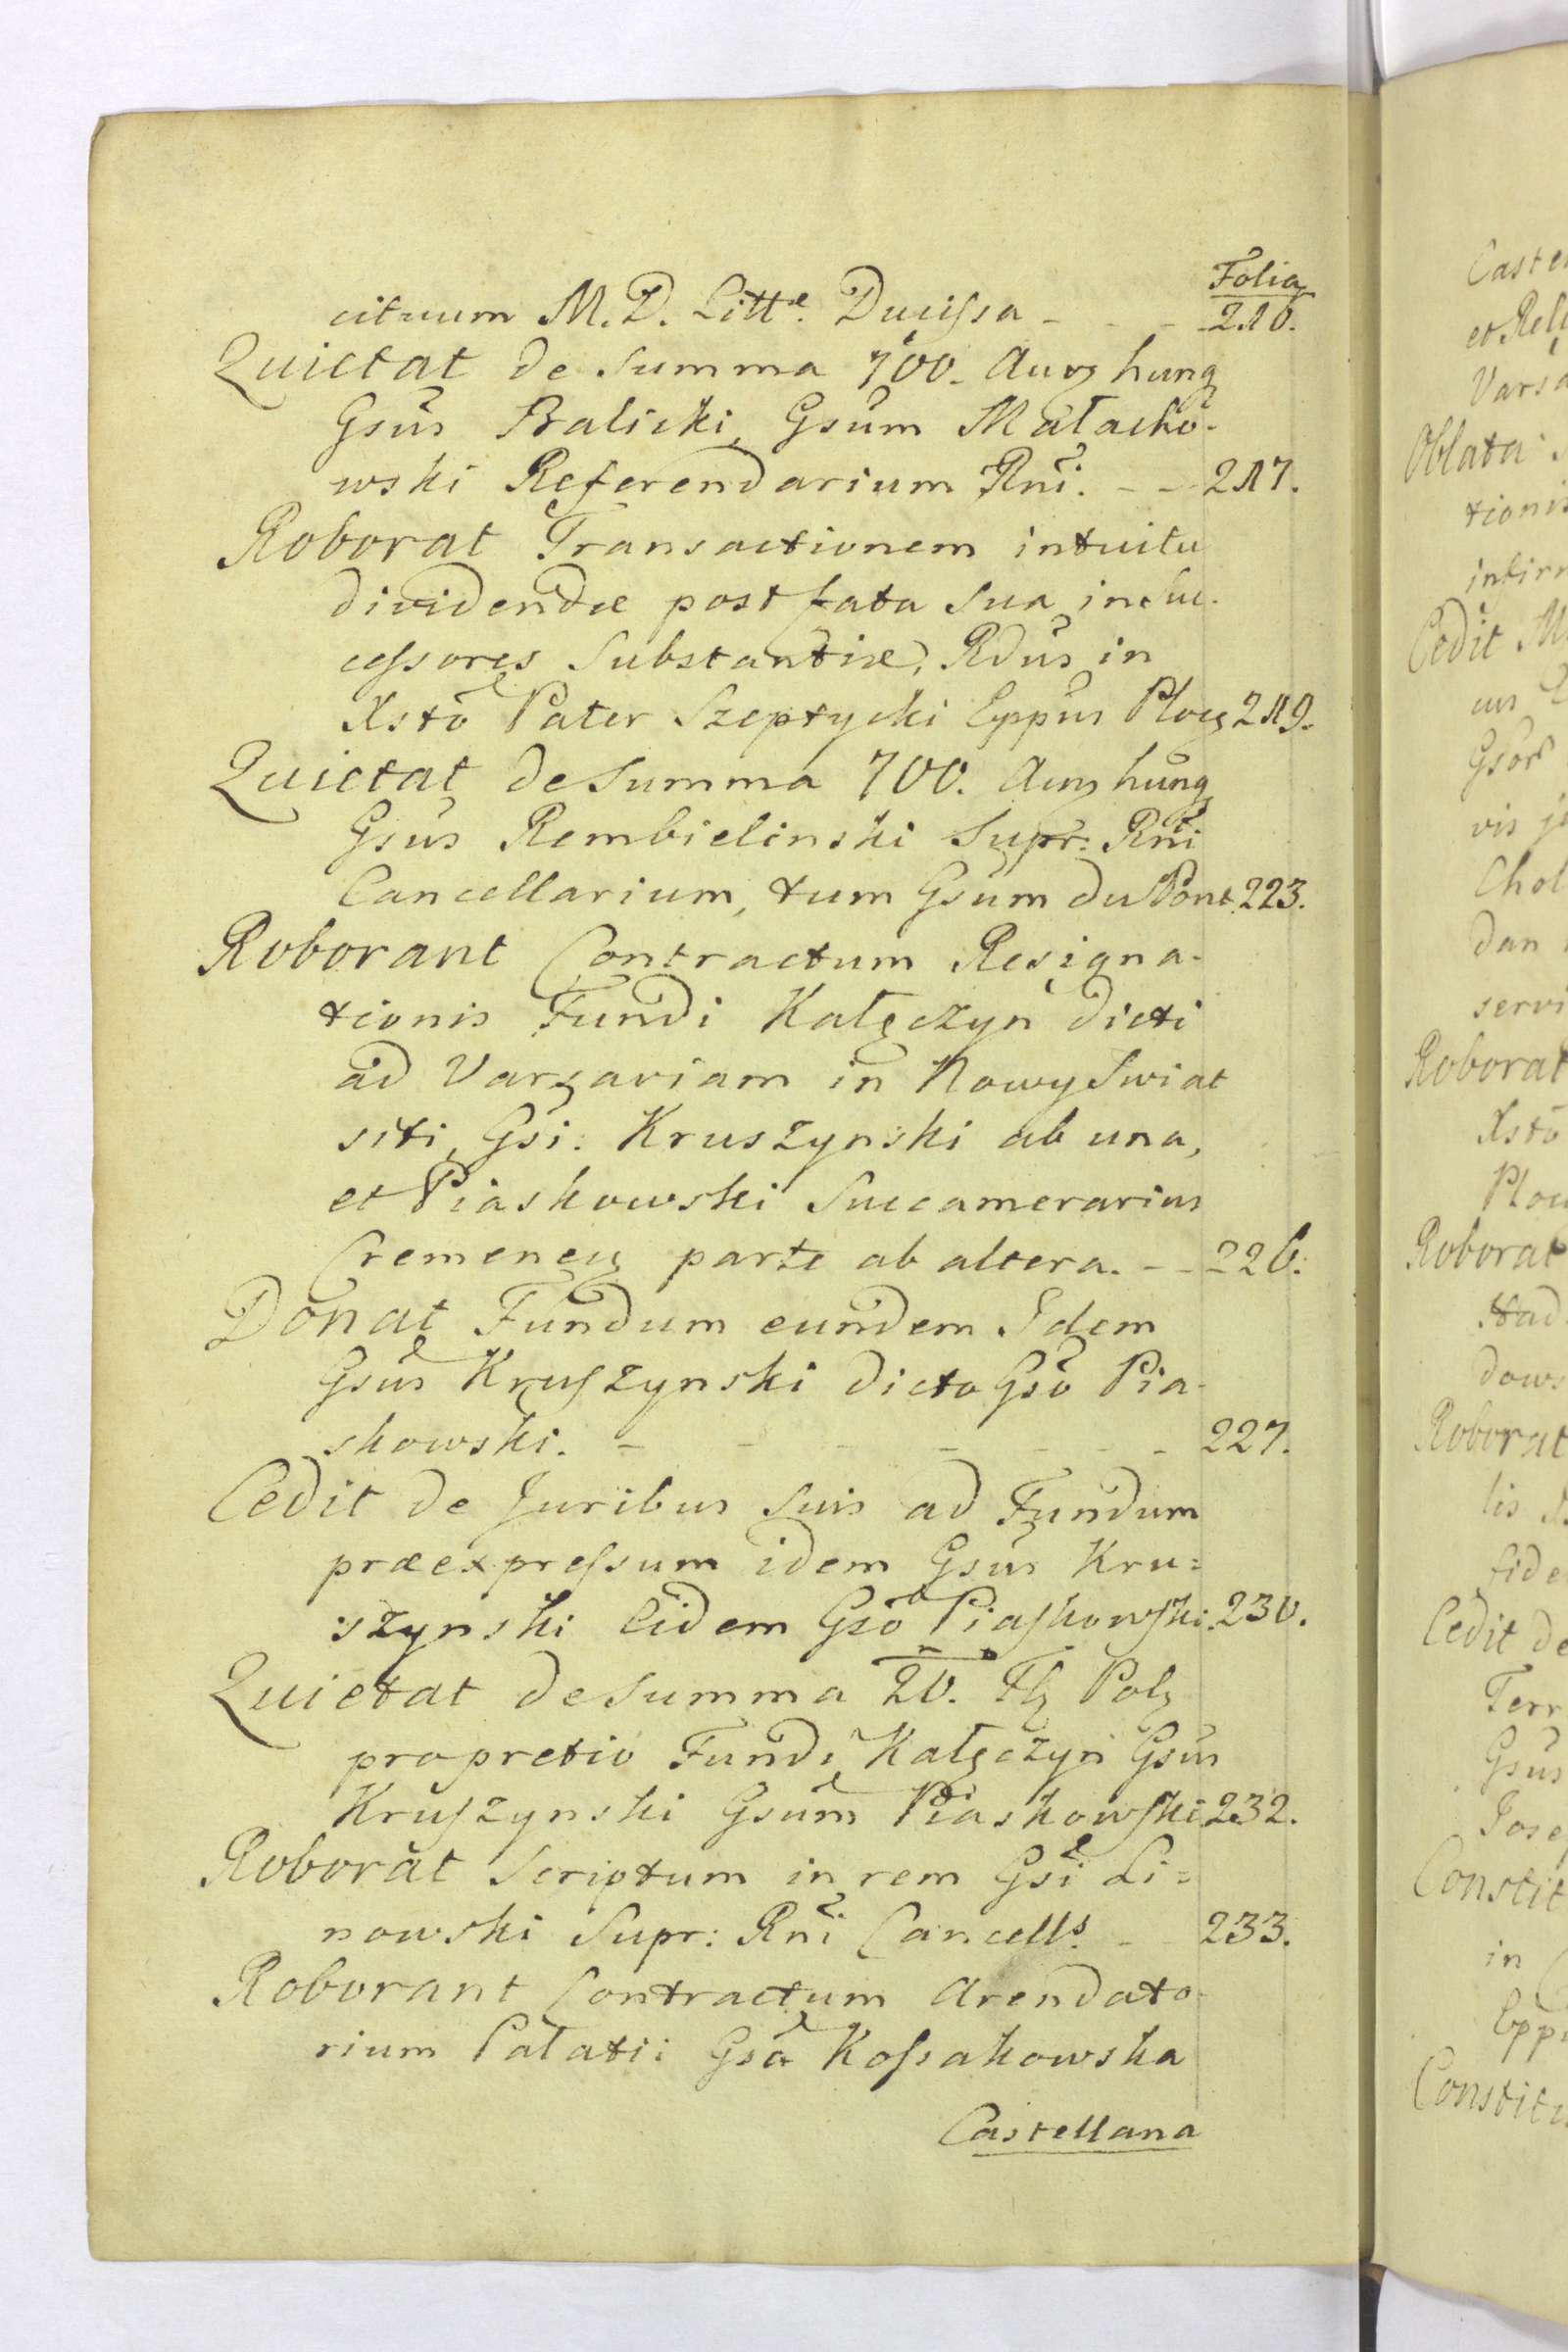 Folia
citruum M. D. Litt.e Ducissa - - - 216.
Quietat de Summa 700. Aur hung
Gsus Balicki, Gsum Małacho-
wski Referendarium Rni. - - 217.
Roborat Transactionem intuitu
dividendæ post fata Sua in Suc-
cessores Substantiæ, Rdus in
Xsto Pater Szeptycki Eppus Ploc 219.
Quietat de Summa 700. Aur hung
Gsus Rembielinski Supr: Rni
Cancellarium, tum Gsum du Pont. 223.
Roborant Contractum Resigna-
tionis Fundi Kałęczyn dicti
ad Varsaviam in Nowy Swiat
siti, Gsi: Kruszynski ab una,
et Piaskowski Succamerarius
Cremenec parte ab altera. - - 226.
Donat Fundum eundem Idem
Gsus Kruszynski dicto Gso Pia-
skowski. - - - - - - 227.
Cedit de Juribus Suis ad Fundum
præexpressum idem Gsus Kru=
szynski Eidem Gso Piaskowski. 230.
Quietat de Summa 20. Fl Pol
pro pretio Fundi Kałęczyn Gsus
Kruszynski Gsum Piaskowski 232.
Roborat Scriptum in rem Gsi Li=
nowski Supr: Rni Cancell.s - 233.
Roborant Contractum Arendato-
rium Palatii Gsa Kossakowska
Castellana
Caste
et Reli
Vars
Oblata
tionis
infir
Cedit M
Gsor
vis
Chol
dan
servi
Roborat
Xsto
Ploc
Roborat
dows
Roborat
lis
fide
Cedit de
Terr
Gsus
Jose
Constit
in
Epp
Constit